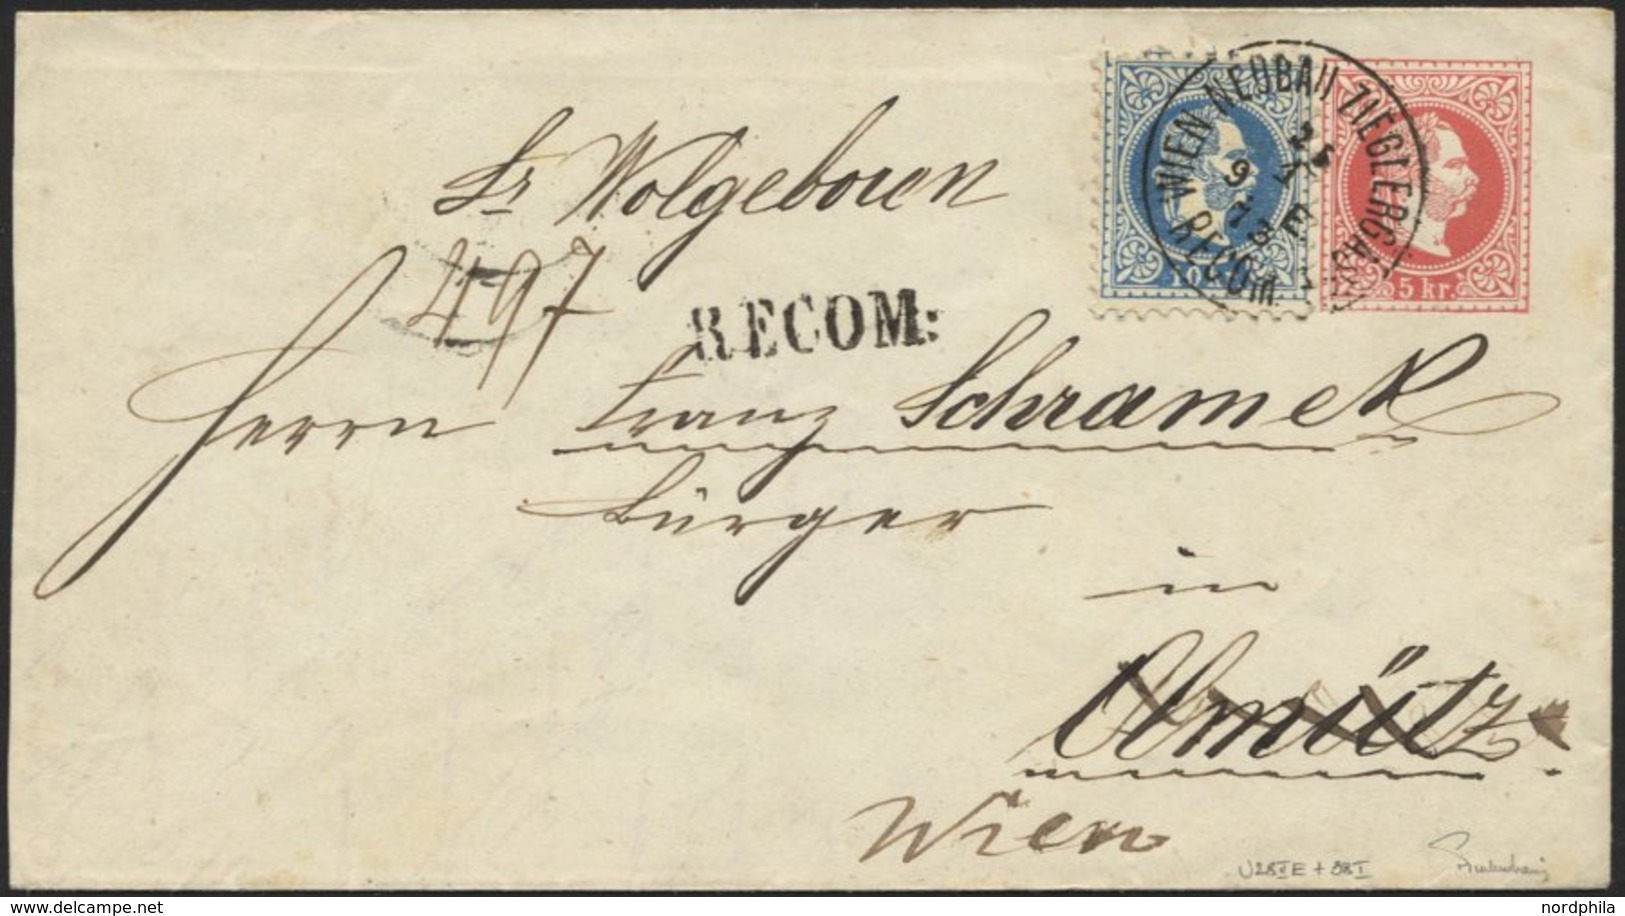 WIEN NEUBAU ZIEGLERGASSE
9
73
RECOM.
5 kr.
Sr Wolgeboren
497
RECOM:
Herrn Franz Schramek
Bürger
in
Olmütz
Wien
www.delcampe.net
nordphila